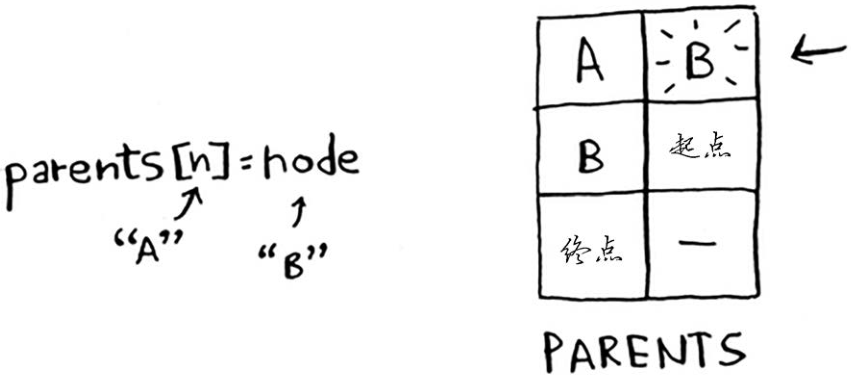 parents[n]=node
“A”
“B”
A B
B 起点
终点 —
PARENTS